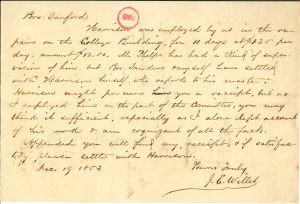 Bro. Sanford
Harrison was employed by us in the re
pairs on the College Building, for 10 days at $1.25 per
day, amount $12.50. Mr Phelps has had a kind of super-
vision of him, but Bro. Sanders and myself have settled
with Harrison himself who reports to his master.
Harrison might procure you a receipt, but as
I employed him on the part of the Committee, you may
think it sufficient, especially as I alone kept account
of his work & am cognizant of all the facts.
Appended you will find my receipt & if satisfac-
tory, please settle with Harrison.
Yours Truly,
Dec. 19 1853
J. E. Willet